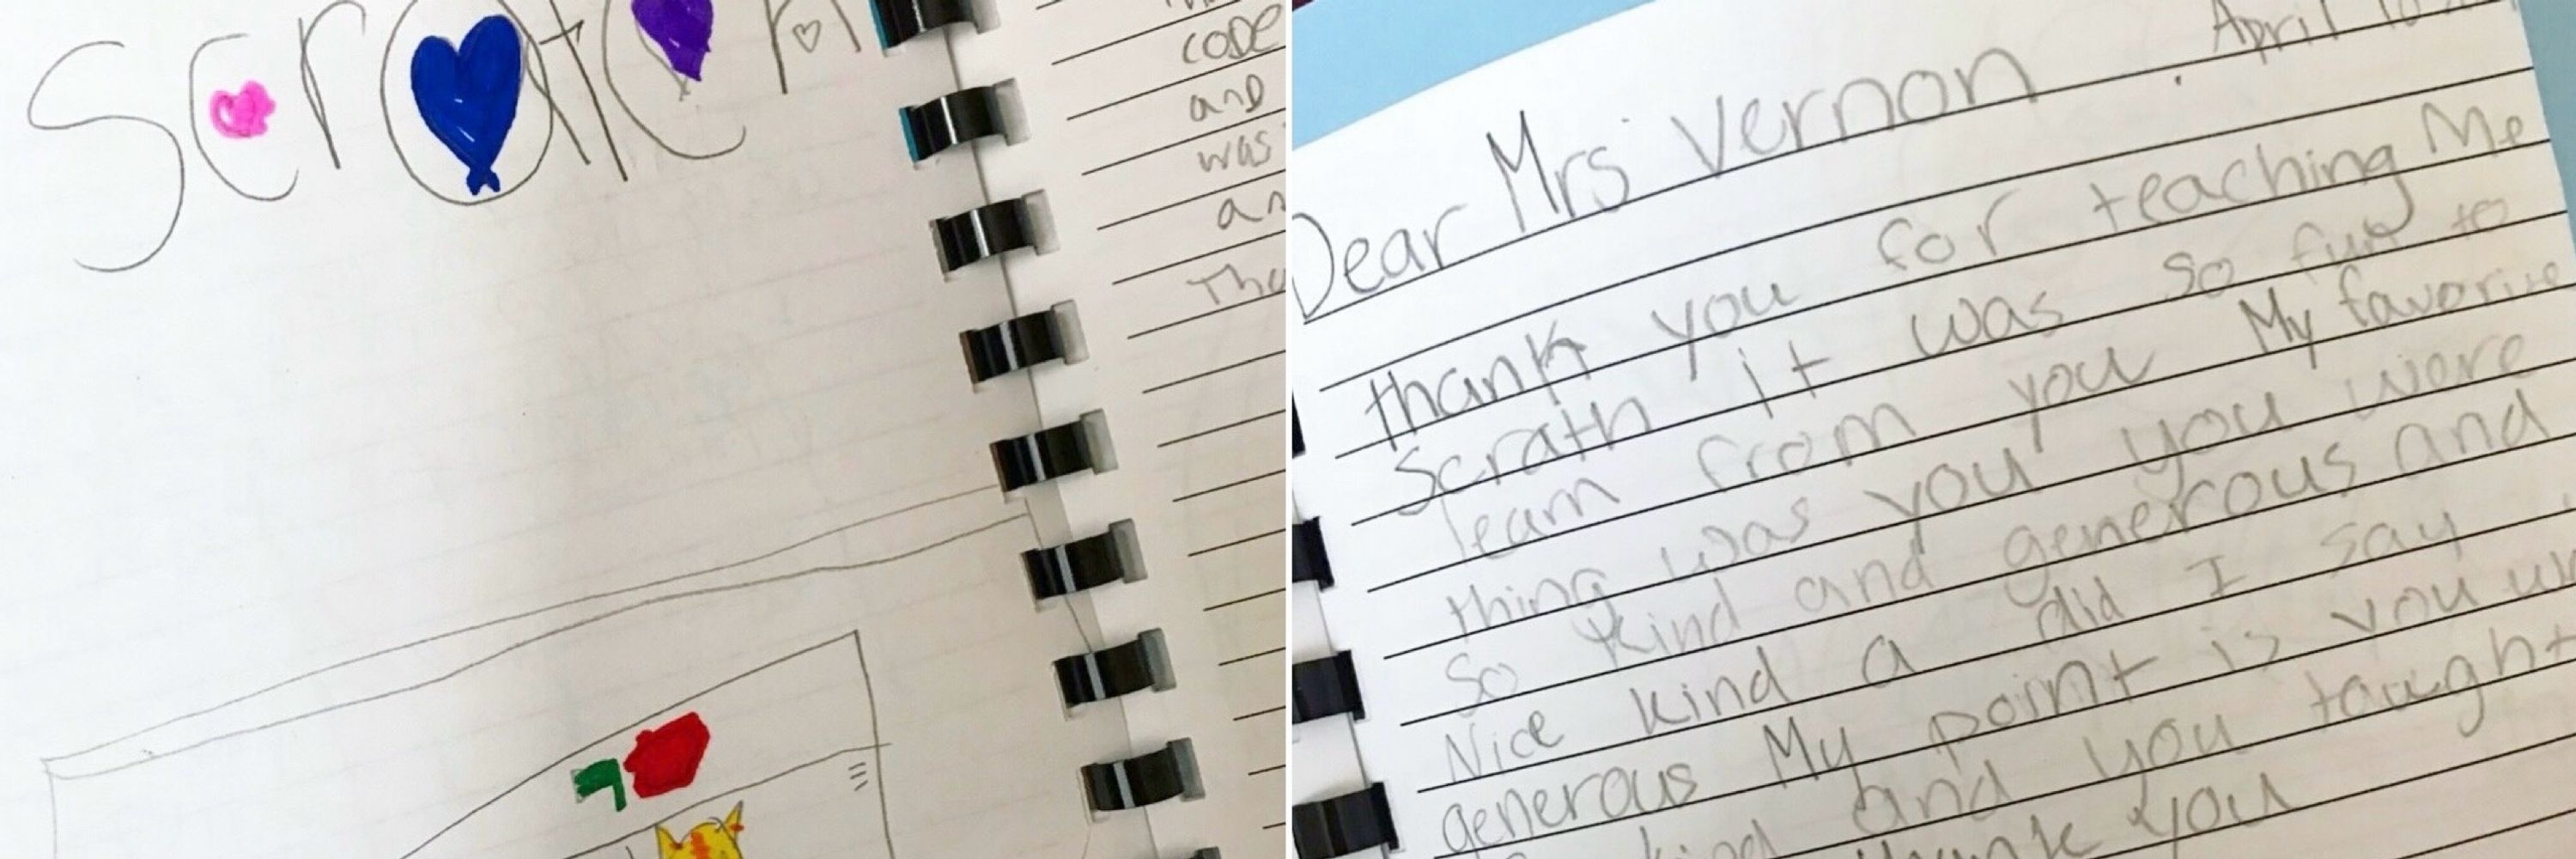 Scratch
code
and
was
April 10
Dear Mrs Vernon
thank you for teaching Me
Scrath it was so fun to
learn from you My favorite
thing was you you were
so kind and generous and
Nice kind a did I say
generous My point is you
kind and you taught
thank you